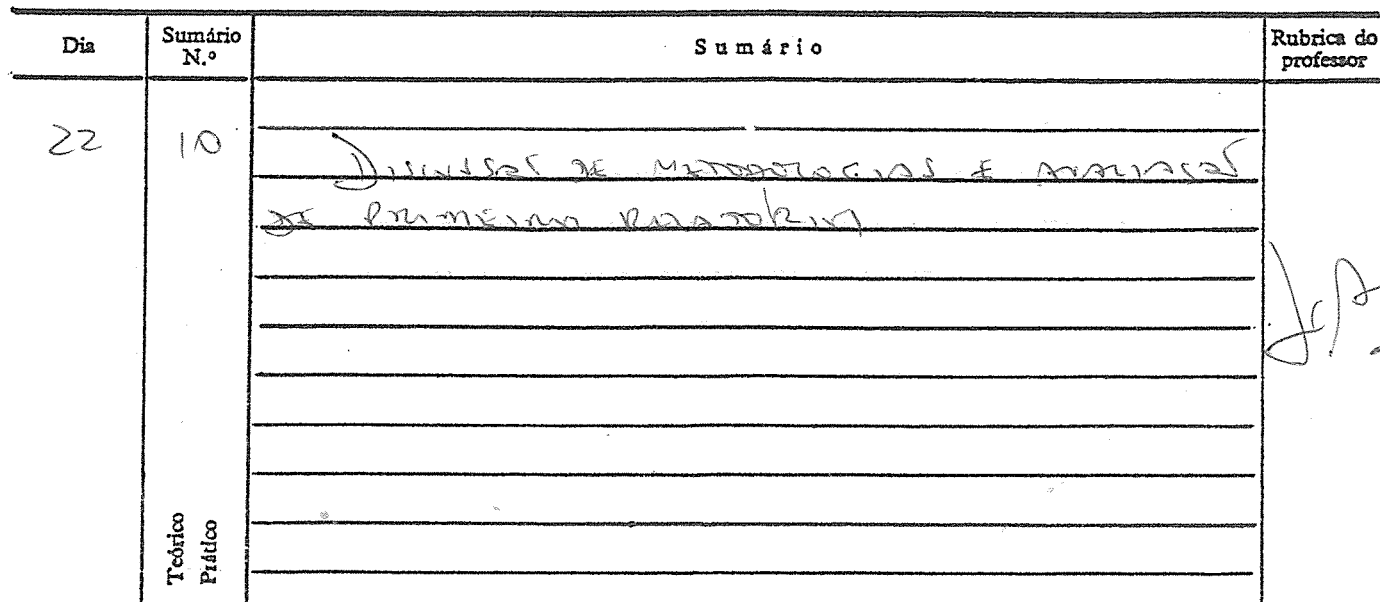 Dia
Sumário N.º
Sumário
Rubrica do professor
22
10
DISCUSSÃO DE METODOLOGIAS E AVALIAÇÃO
DE PRIMEIRO RELATÓRIO
Teórico
Prático